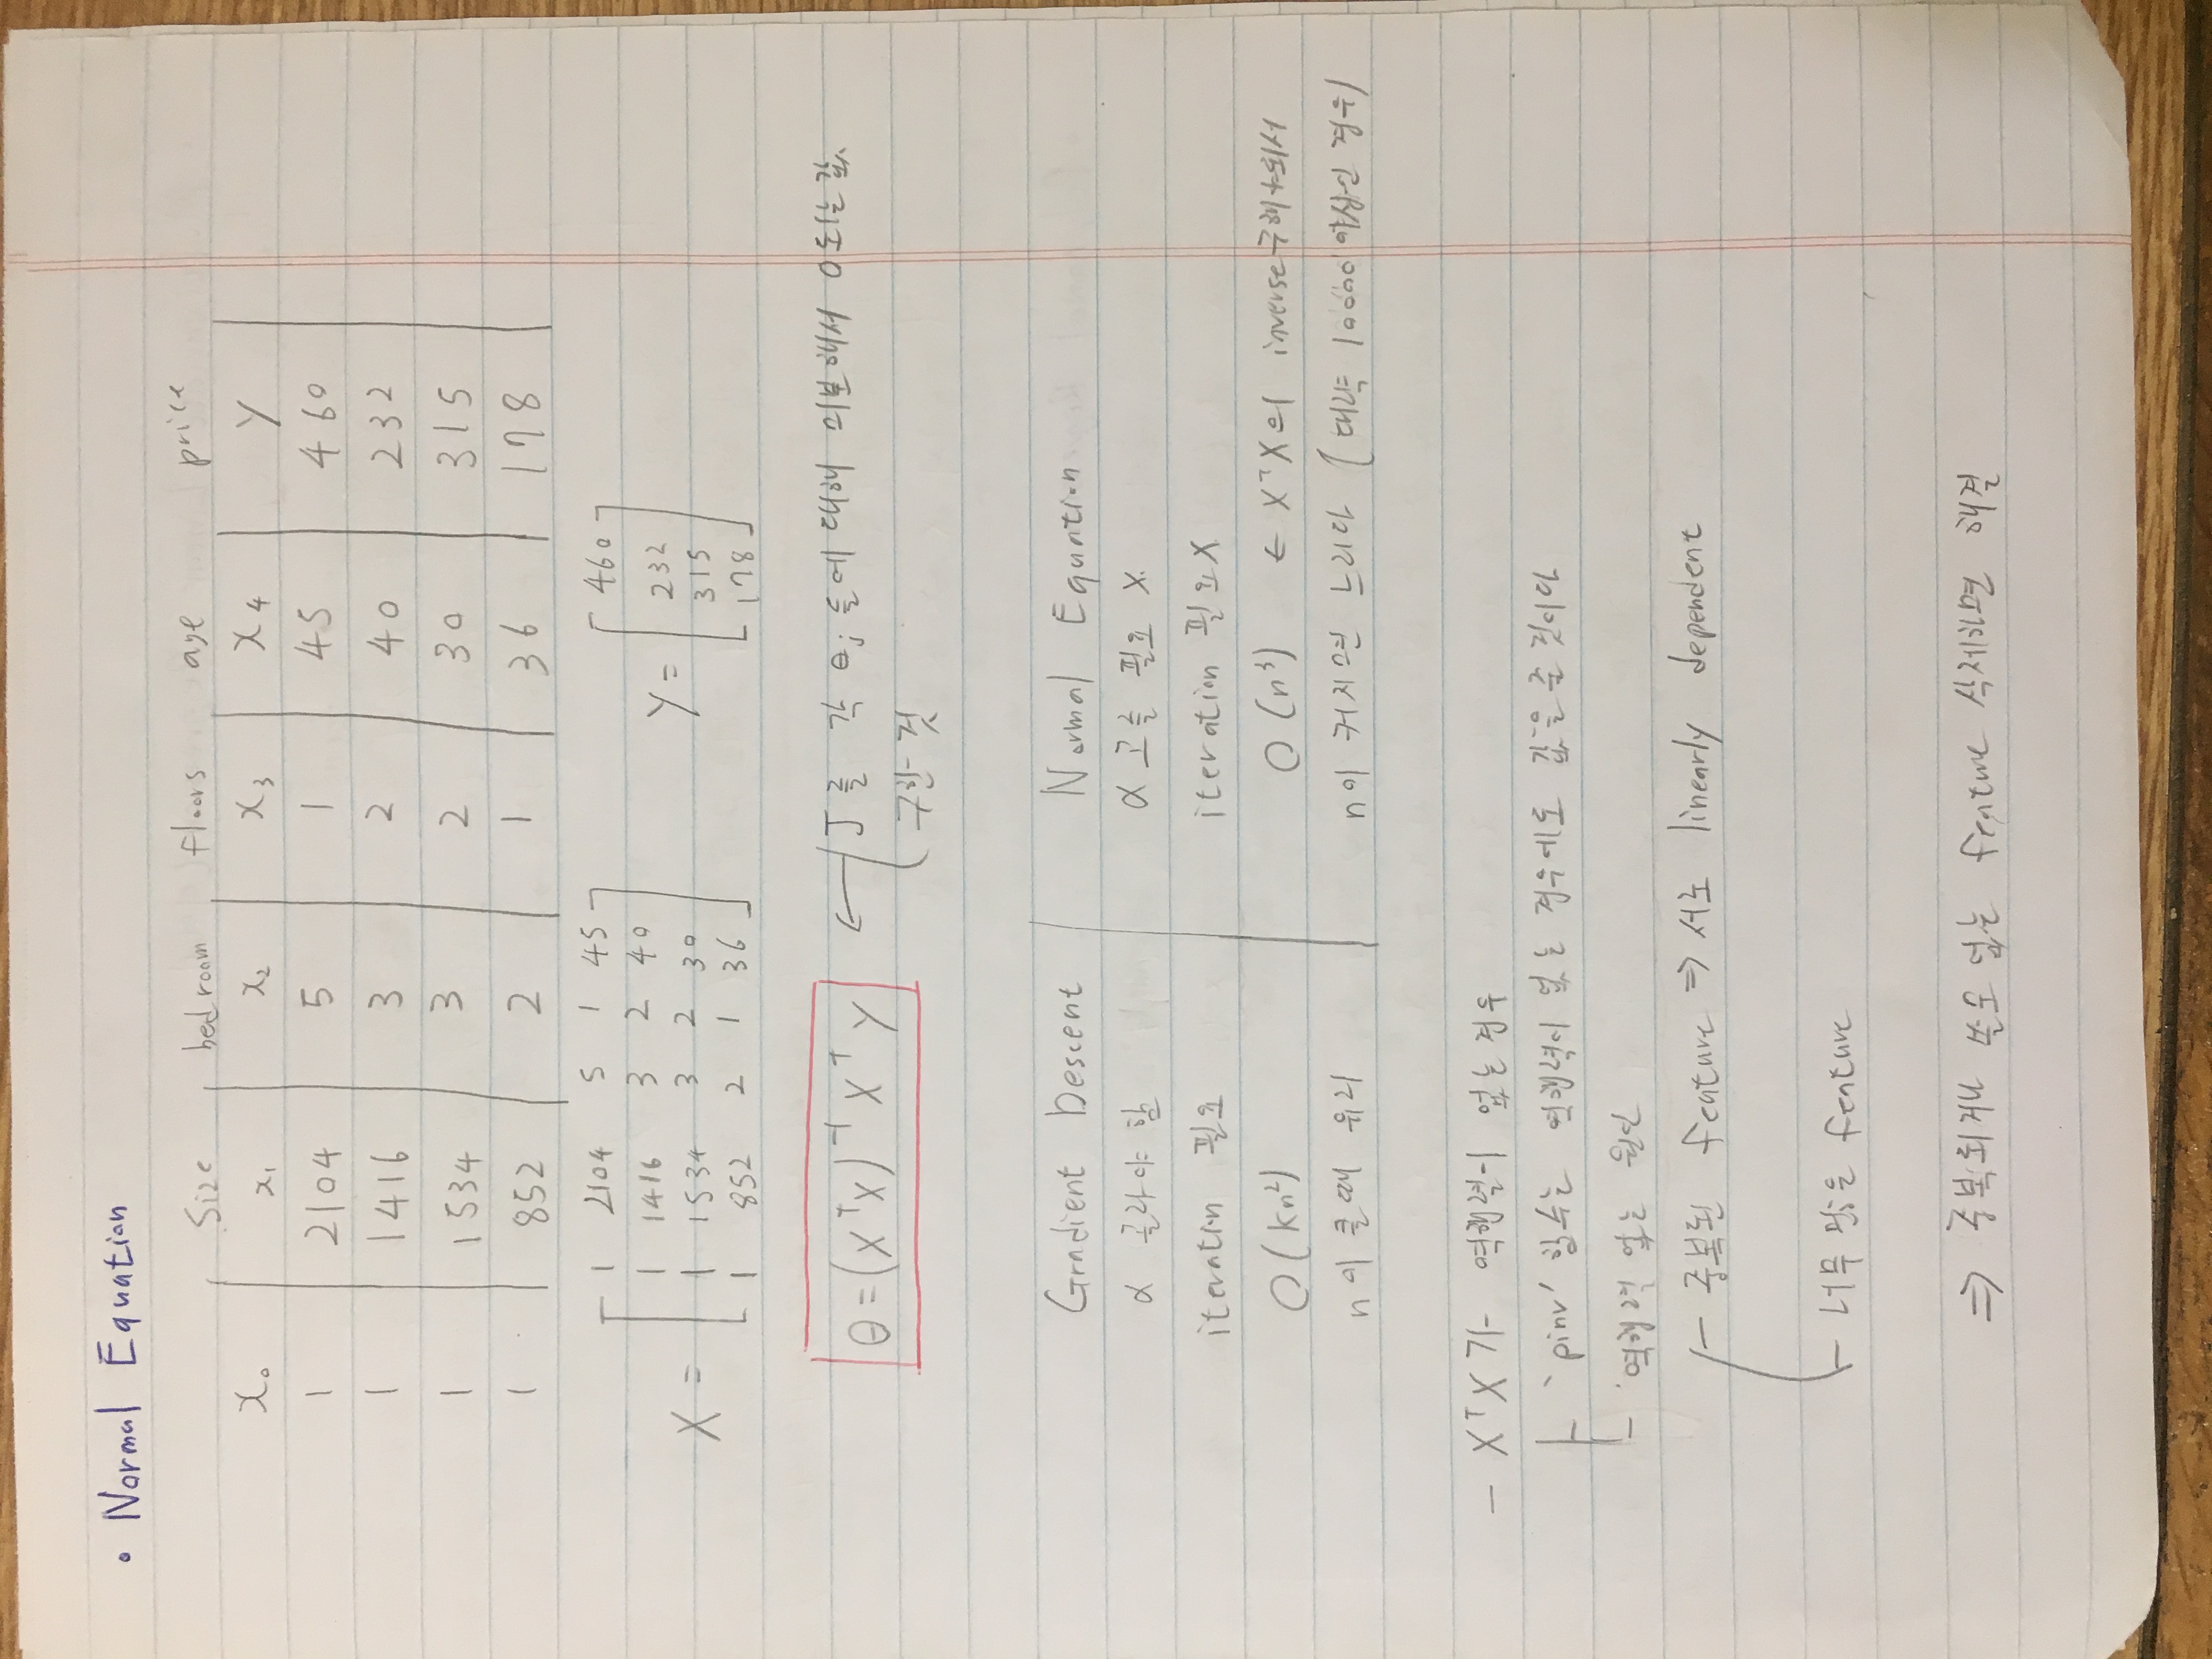 • Normal Equation
Size bedroom floors age price
x₀ x₁ x₂ x₃ x₄ y
1 2104 5 1 45 460
1 1416 3 2 40 232
1 1534 3 2 30 315
1 852 2 1 36 178
X = [ 1 2104 5 1 45
1 1416 3 2 40
1 1534 3 2 30
1 852 2 1 36 ]
Y = [ 460
232
315
178 ]
θ = (XᵀX)⁻¹ Xᵀ y ← J를 각 θⱼ들에 대해 미분해서 0되는 값
구한 것
Gradient Descent Normal Equation
α 골라야 함 α 고를 필요 X.
iteration 필요 iteration 필요 X
O(kn²) O(n³) ← XᵀX의 inverse 구해야되서
n이 클 때 유리 n이 커지면 느리다 (대략 10000 이상인 경우)
- XᵀX 가 역행렬이 없는 경우
- 'pinv' 함수는 역행렬이 없는 경우에도 값을 줄 것이다
- 역행렬 없는 원인
- 중복된 feature ⇒ 서로 linearly dependent
- 너무 많은 feature
⇒ 중복되거나 쓸모 없는 feature 삭제하면 해결